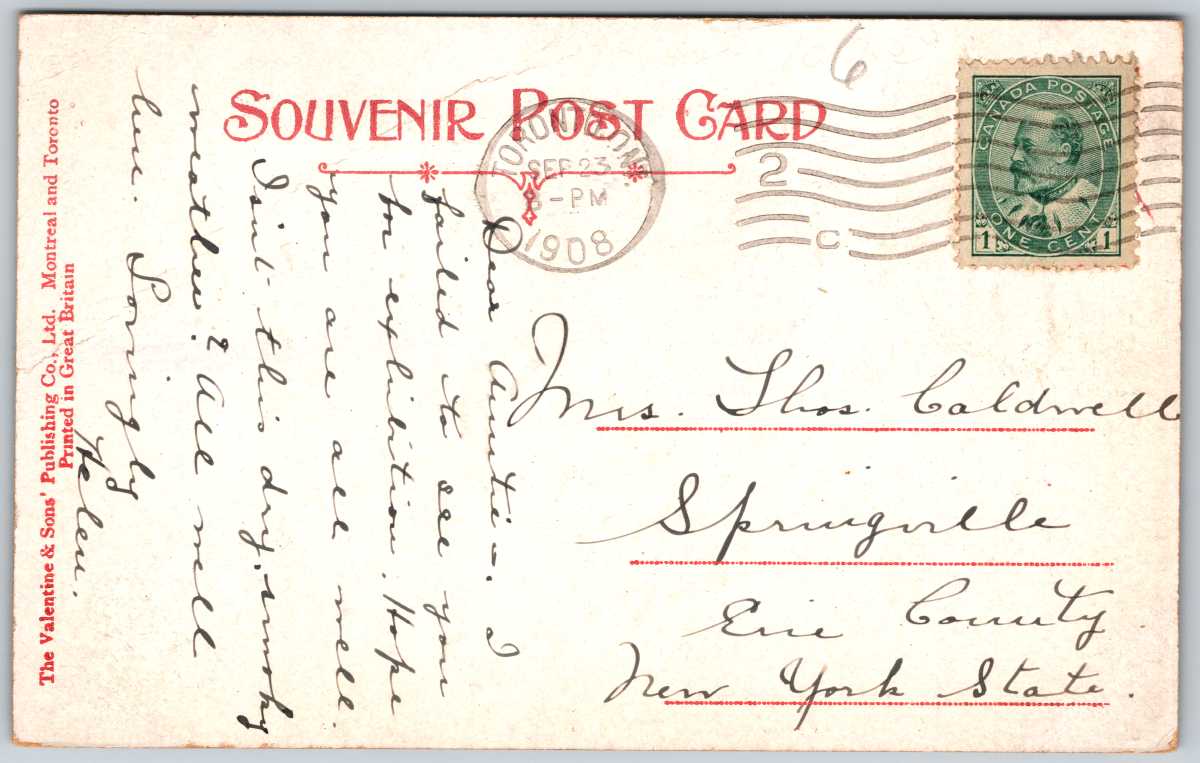 SOUVENIR POST CARD
6
TORONTO, ONT.
SEP 23
6-PM
1908
2
C
CANADA POSTAGE
ONE CENT
1 1
Dear Auntie-. I
failed to see you
for exhibition. Hope
you are all well.
Isn't this dry, smoky
weather? All well
here. Lovingly
Helen.
Mrs. Thos. Caldwell
Springville
Erie County
New York State.
The Valentine & Sons' Publishing Co., Ltd. Montreal and Toronto
Printed in Great Britain